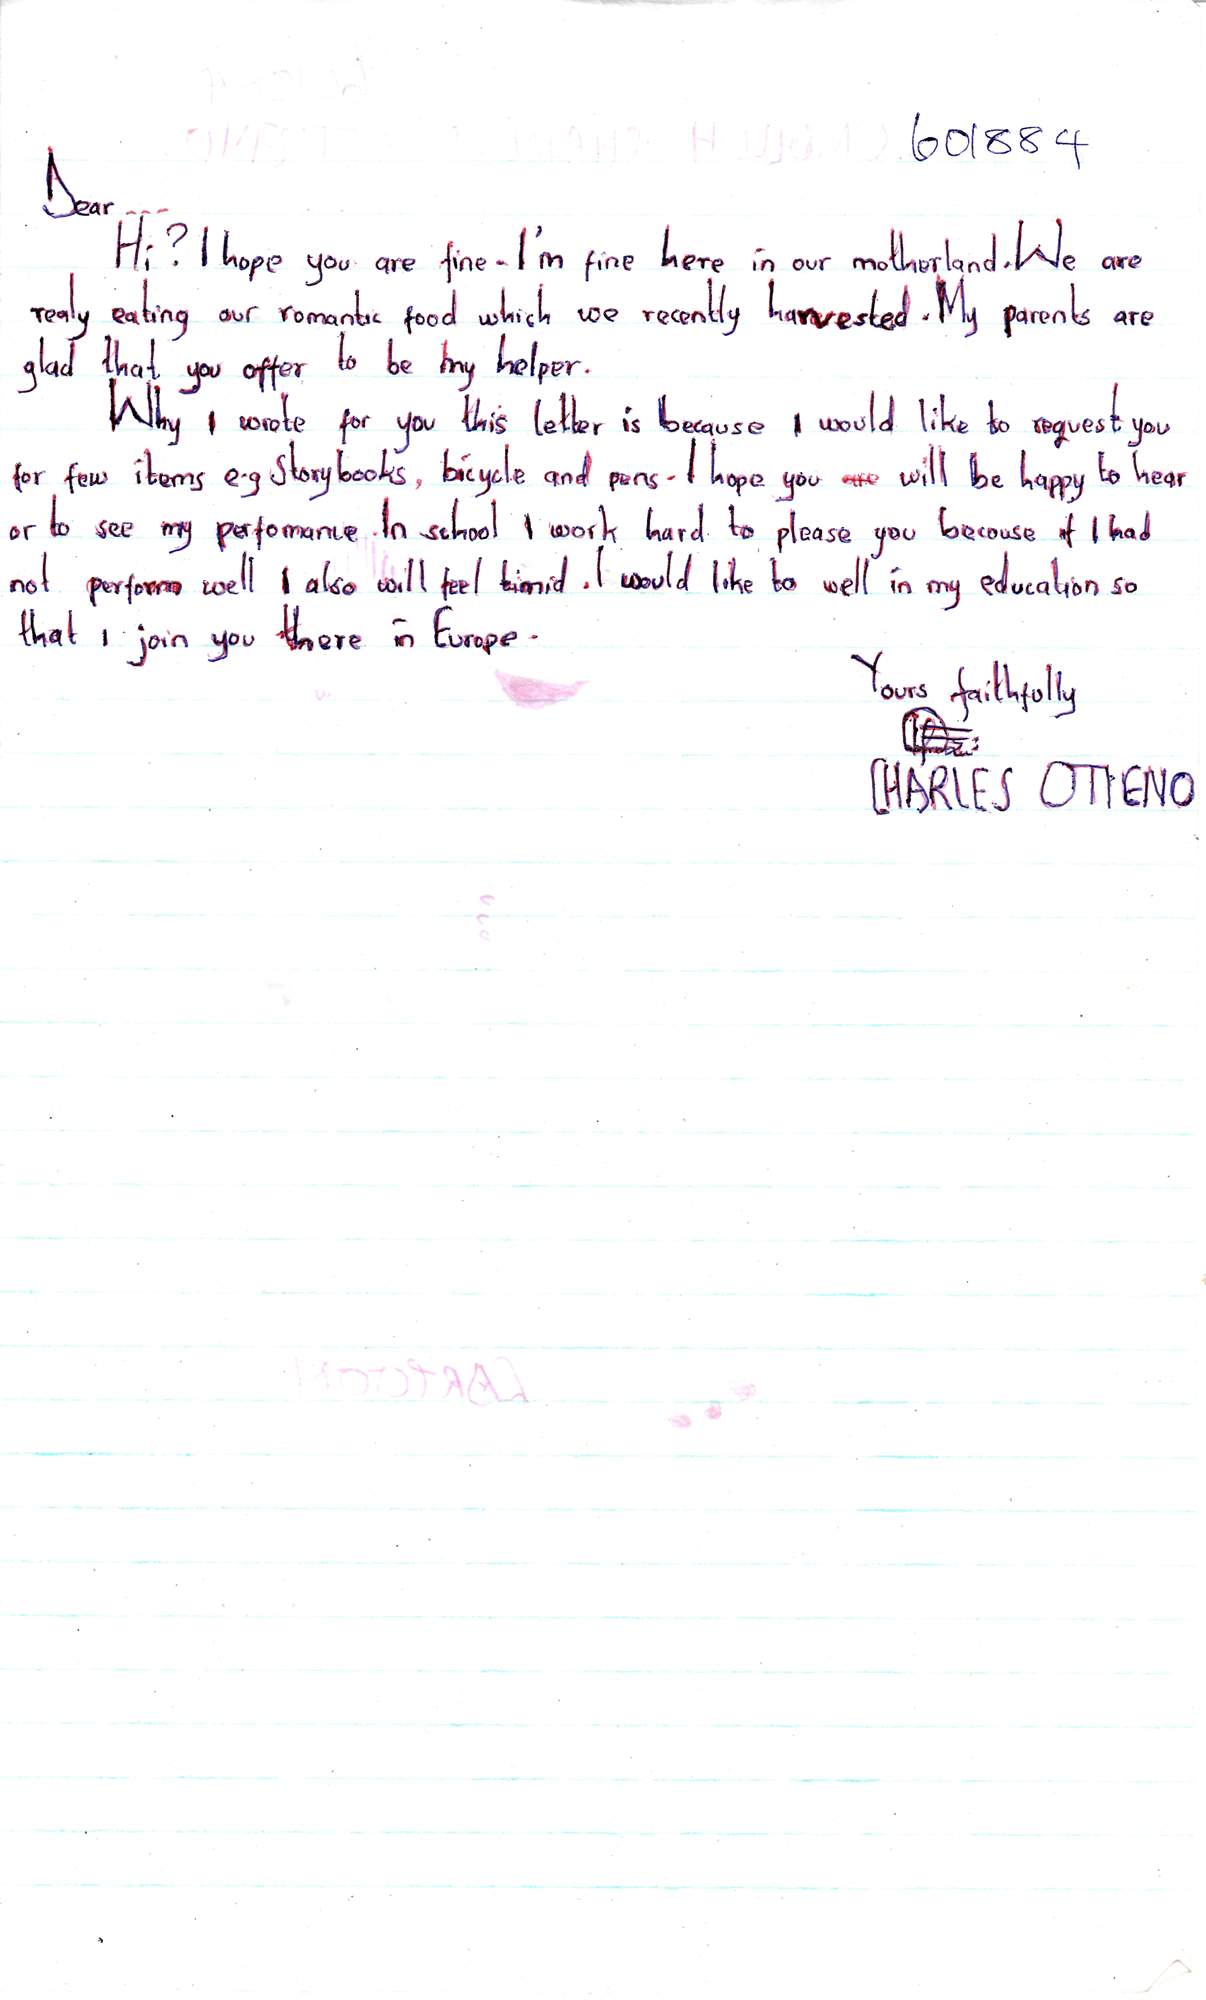 601884
Dear ---
Hi? I hope you are fine. I'm fine here in our motherland. We are
realy eating our romantic food which we recently harvested. My parents are
glad that you offer to be my helper.
Why I wrote for you this letter is because I would like to request you
for few items e.g Storybooks, bicycle and pens. I hope you are will be happy to hear
or to see my perfomance. In school I work hard to please you becouse if I had
not perform well I also will feel timid. I would like to well in my education so
that I join you there in Europe.
Yours faithfully
CHARLES OTIENO